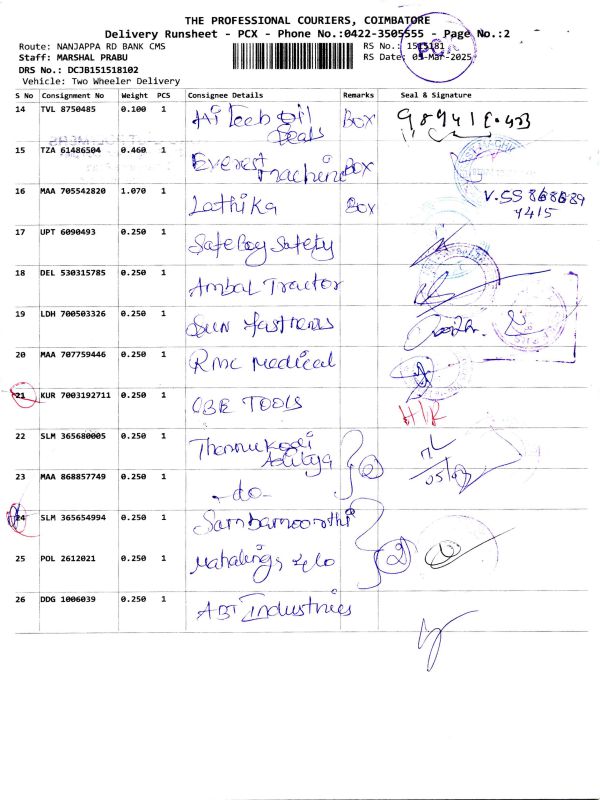 THE PROFESSIONAL COURIERS, COIMBATORE
Delivery Runsheet - PCX - Phone No.:0422-3505555 - Page No.:2
Route: NANJAPPA RD BANK CMS
RS No.: 1515181
Staff: MARSHAL PRABU
RS Date: 05-Mar-2025
DRS No.: DCJB151518102
Vehicle: Two Wheeler Delivery
PCX
S No Consignment No Weight PCS Consignee Details Remarks Seal & Signature
14 TVL 8750485 0.100 1 Hi Tech Oil Seals Box
15 TZA 61486504 0.460 1 Everest Machine Box
16 MAA 705542820 1.070 1 Lathika Box
17 UPT 6090493 0.250 1 Safe Buy Safety
18 DEL 530315785 0.250 1 Ambal Tractor
19 LDH 700503326 0.250 1 Sun fastners
20 MAA 707759446 0.250 1 RMC Medical
21 KUR 7003192711 0.250 1 CBE TOOLS H/R
22 SLM 365680005 0.250 1 Aditya 2
05/03
23 MAA 868857749 0.250 1 -do-
24 SLM 365654994 0.250 1 Sambamoorthi
25 POL 2612021 0.250 1 Mahalinga & Co 2
26 DDG 1006039 0.250 1 ABT Industries